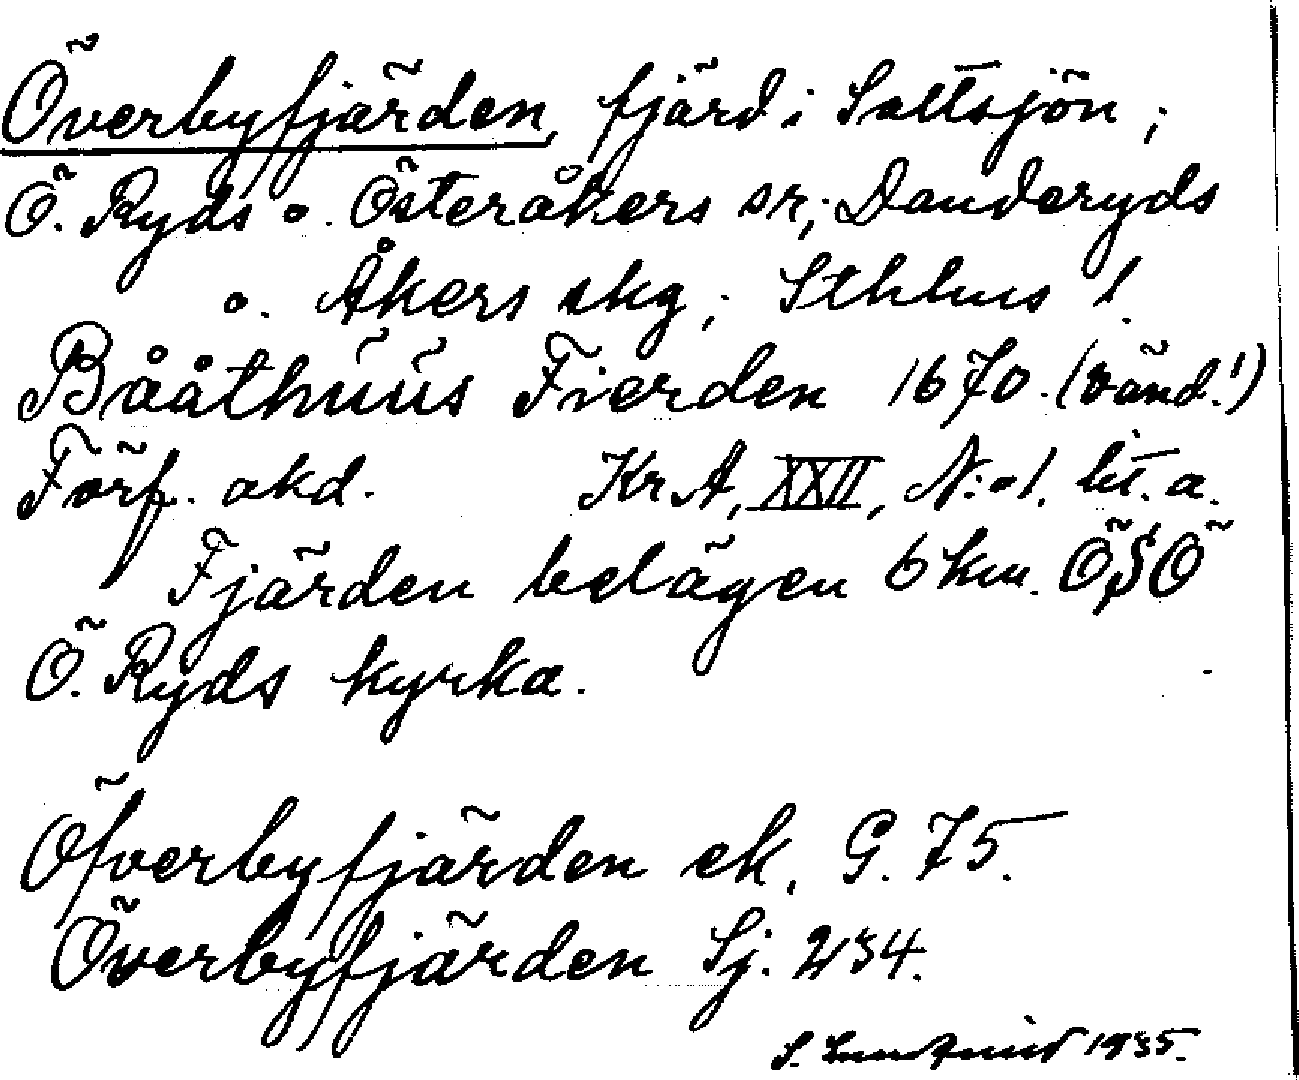 Överbyfjärden, fjärd i Saltsjön;
Ö. Ryds o. Österåkers sr; Danderyds
o. Åkers skg; Sthlms l.
Bååthuus Fierden 1670. (vänd!)
Förf. okd. Kr A, XXII, N:o 1. lit. a.
Fjärden belägen 6 km. ÖSÖ
Ö. Ryds kyrka.
Öfverbyfjärden ek. G. 75.
Överbyfjärden Sj. 234.
S. Lundquist 1935.